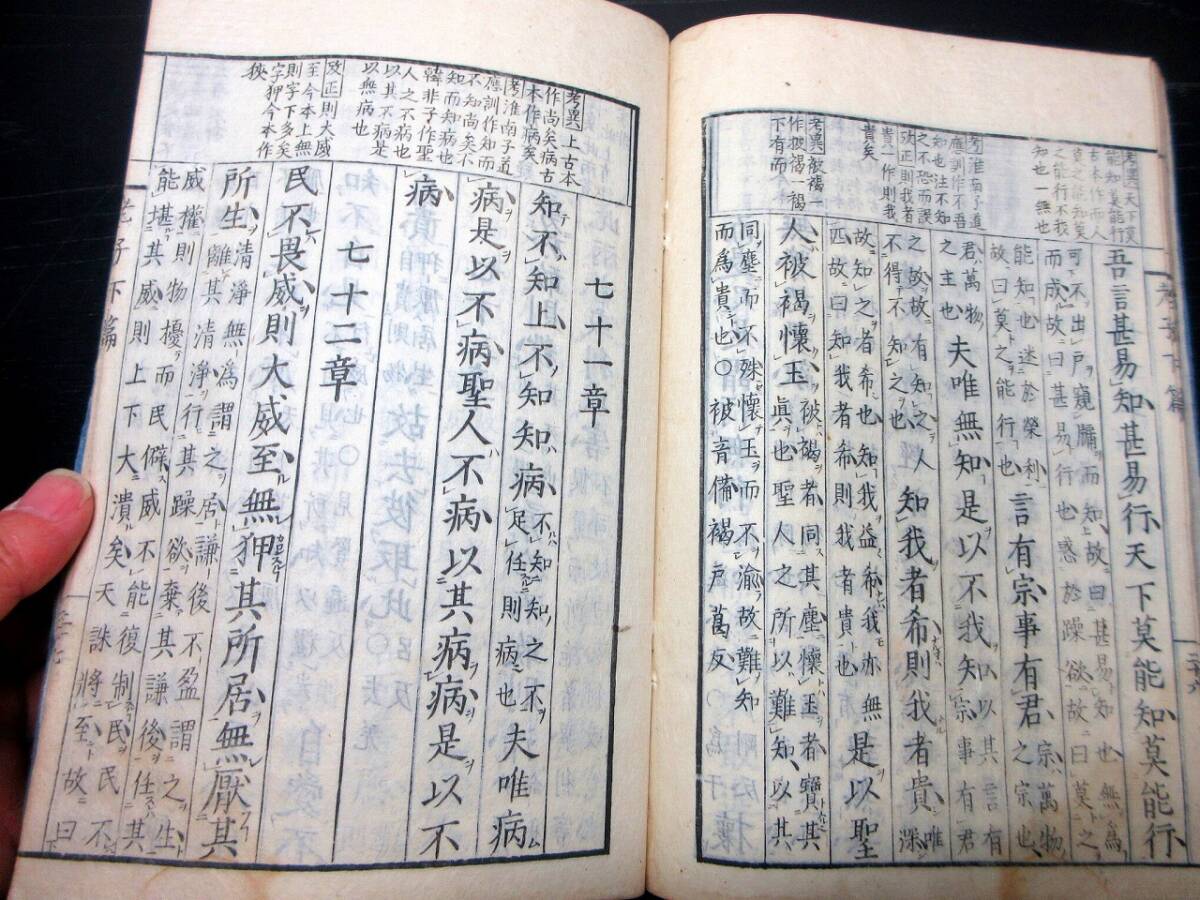 考異天下莫
能知莫能行
古本作而人
莫之能知莫
之能行不我
知也一無也
考淮南子道
應訓作不吾
知也注不知
之不恐而誤
攷正則我者
貴一作則我
貴矣
考異被褐一
作披褐一褐
下有而
吾言甚易知甚易行天下莫能知莫能行
可不出戶窺牖而知故曰甚易知也無爲
而成故曰甚易行也惑於躁欲故曰莫之
能知也迷於榮利
故曰莫之能行也
言有宗事有君
宗萬物
之宗也
君萬物
之主也
夫唯無知是以不我知
以其言有
宗事有君
之故故有知之人
不得不知之也
知我者希則我者貴
唯
深
故知之者希也知我益希我亦無
匹故曰知我者希則我者貴也
是以聖
人被褐懷玉
被褐者同其塵懷玉者寶其
眞也聖人之所以難知以其
同塵而不殊懷玉而不渝故難知
而爲貴也〇被音備褐戶葛反
老子下篇
考異上古本
作尚矣病古
本作病矣
考淮南子道
應訓作知而
不知尚矣不
知而知病也
韓非子作聖
人之不病也
以其不病是
以無病也
攷正則大威
至今本上無
則字下多矣
字狎今本作
狹
七十一章
知不知上不知知病
不知知之不
足任則病也
夫唯病
病是以不病聖人不病以其病病是以不
病
七十二章
民不畏威則大威至無狎其所居無厭其
所生
清淨無爲謂之居謙後不盈謂之生
離其清淨行其躁欲棄其謙後任其
威權則物擾而民僻威不能復制民民不
能堪其威則上下大潰矣天誅將至故曰
老子下篇